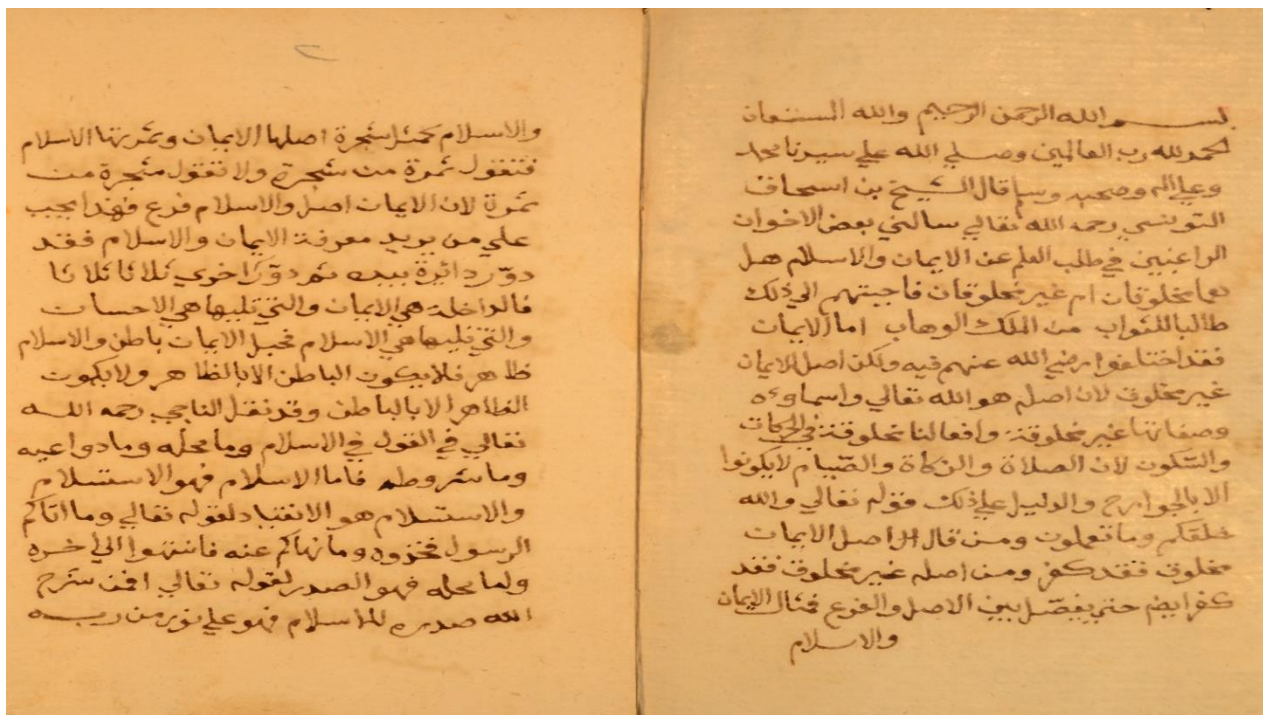 بسم الله الرحمن الرحيم والله المستعان
الحمد لله رب العالمين وصلي الله علي سيدنا محمد
وعلي اله وصحبه وسلم قال الشيخ بن اسحاق
التونسي رحمه الله تعالي سالني بعض الاخوان
الراغبين في طلب العلم عن الايمان والاسلام هل
هما مخلوقان ام غير مخلوقان فاجبتهم الي ذلك
طالبا للثواب من الملك الوهاب اما الايمان
فقد اختلفوا رضي الله عنهم فيه ولكن اصل الايمان
غير مخلوق لان اصله هو الله تعالي واسماوه
وصفاتها غير مخلوقة وافعالنا مخلوقة في الحركات
والسّكون لان الصلاة والزكاة والصّيام لا يكونوا
الا بالجوارح والدليل علي ذلك قوله تعالي والله
خلقكم وما تعملون ومن قال ان اصل الايمان
مخلوق فقد كفر ومن اصله غير مخلوق فقد
كفر ايضا حتي يفصّل بين الاصل والفرع فمثال الايمان
والاسلام
٢
والاسلام كمثل شجرة اصلها الايمان وثمرتها الاسلام
فتقول ثمرة من شجرة ولا تقول شجرة من
ثمرة لان الايمان اصل والاسلام فرع فهذا يجب
علي من يريد معرفة الايمان والاسلام فقد
دوّر دائرة بيده ثم دوّر اخري ثلاثا ثلاثا
فالداخلة هي الايمان والتي تليها هي الاحسان
والتي تليها هي الاسلام فجعل الايمان باطن والاسلام
ظاهر فلا يكون الباطن الا بالظاهر ولا يكون
الظاهر الا بالباطن وقد نقل الناجي رحمه الله
تعالي في القول في الاسلام وما محلّه وما دواعيه
وما شروطه فاما الاسلام فهو الاستسلام
والاستسلام هو الانقياد لقوله تعالي وما اتاكم
الرسول فخذوه وما نهاكم عنه فانتهوا الي اخره
واما محله فهو الصدر لقوله تعالي افمن شرح
الله صدره للاسلام فهو علي نور من ربه